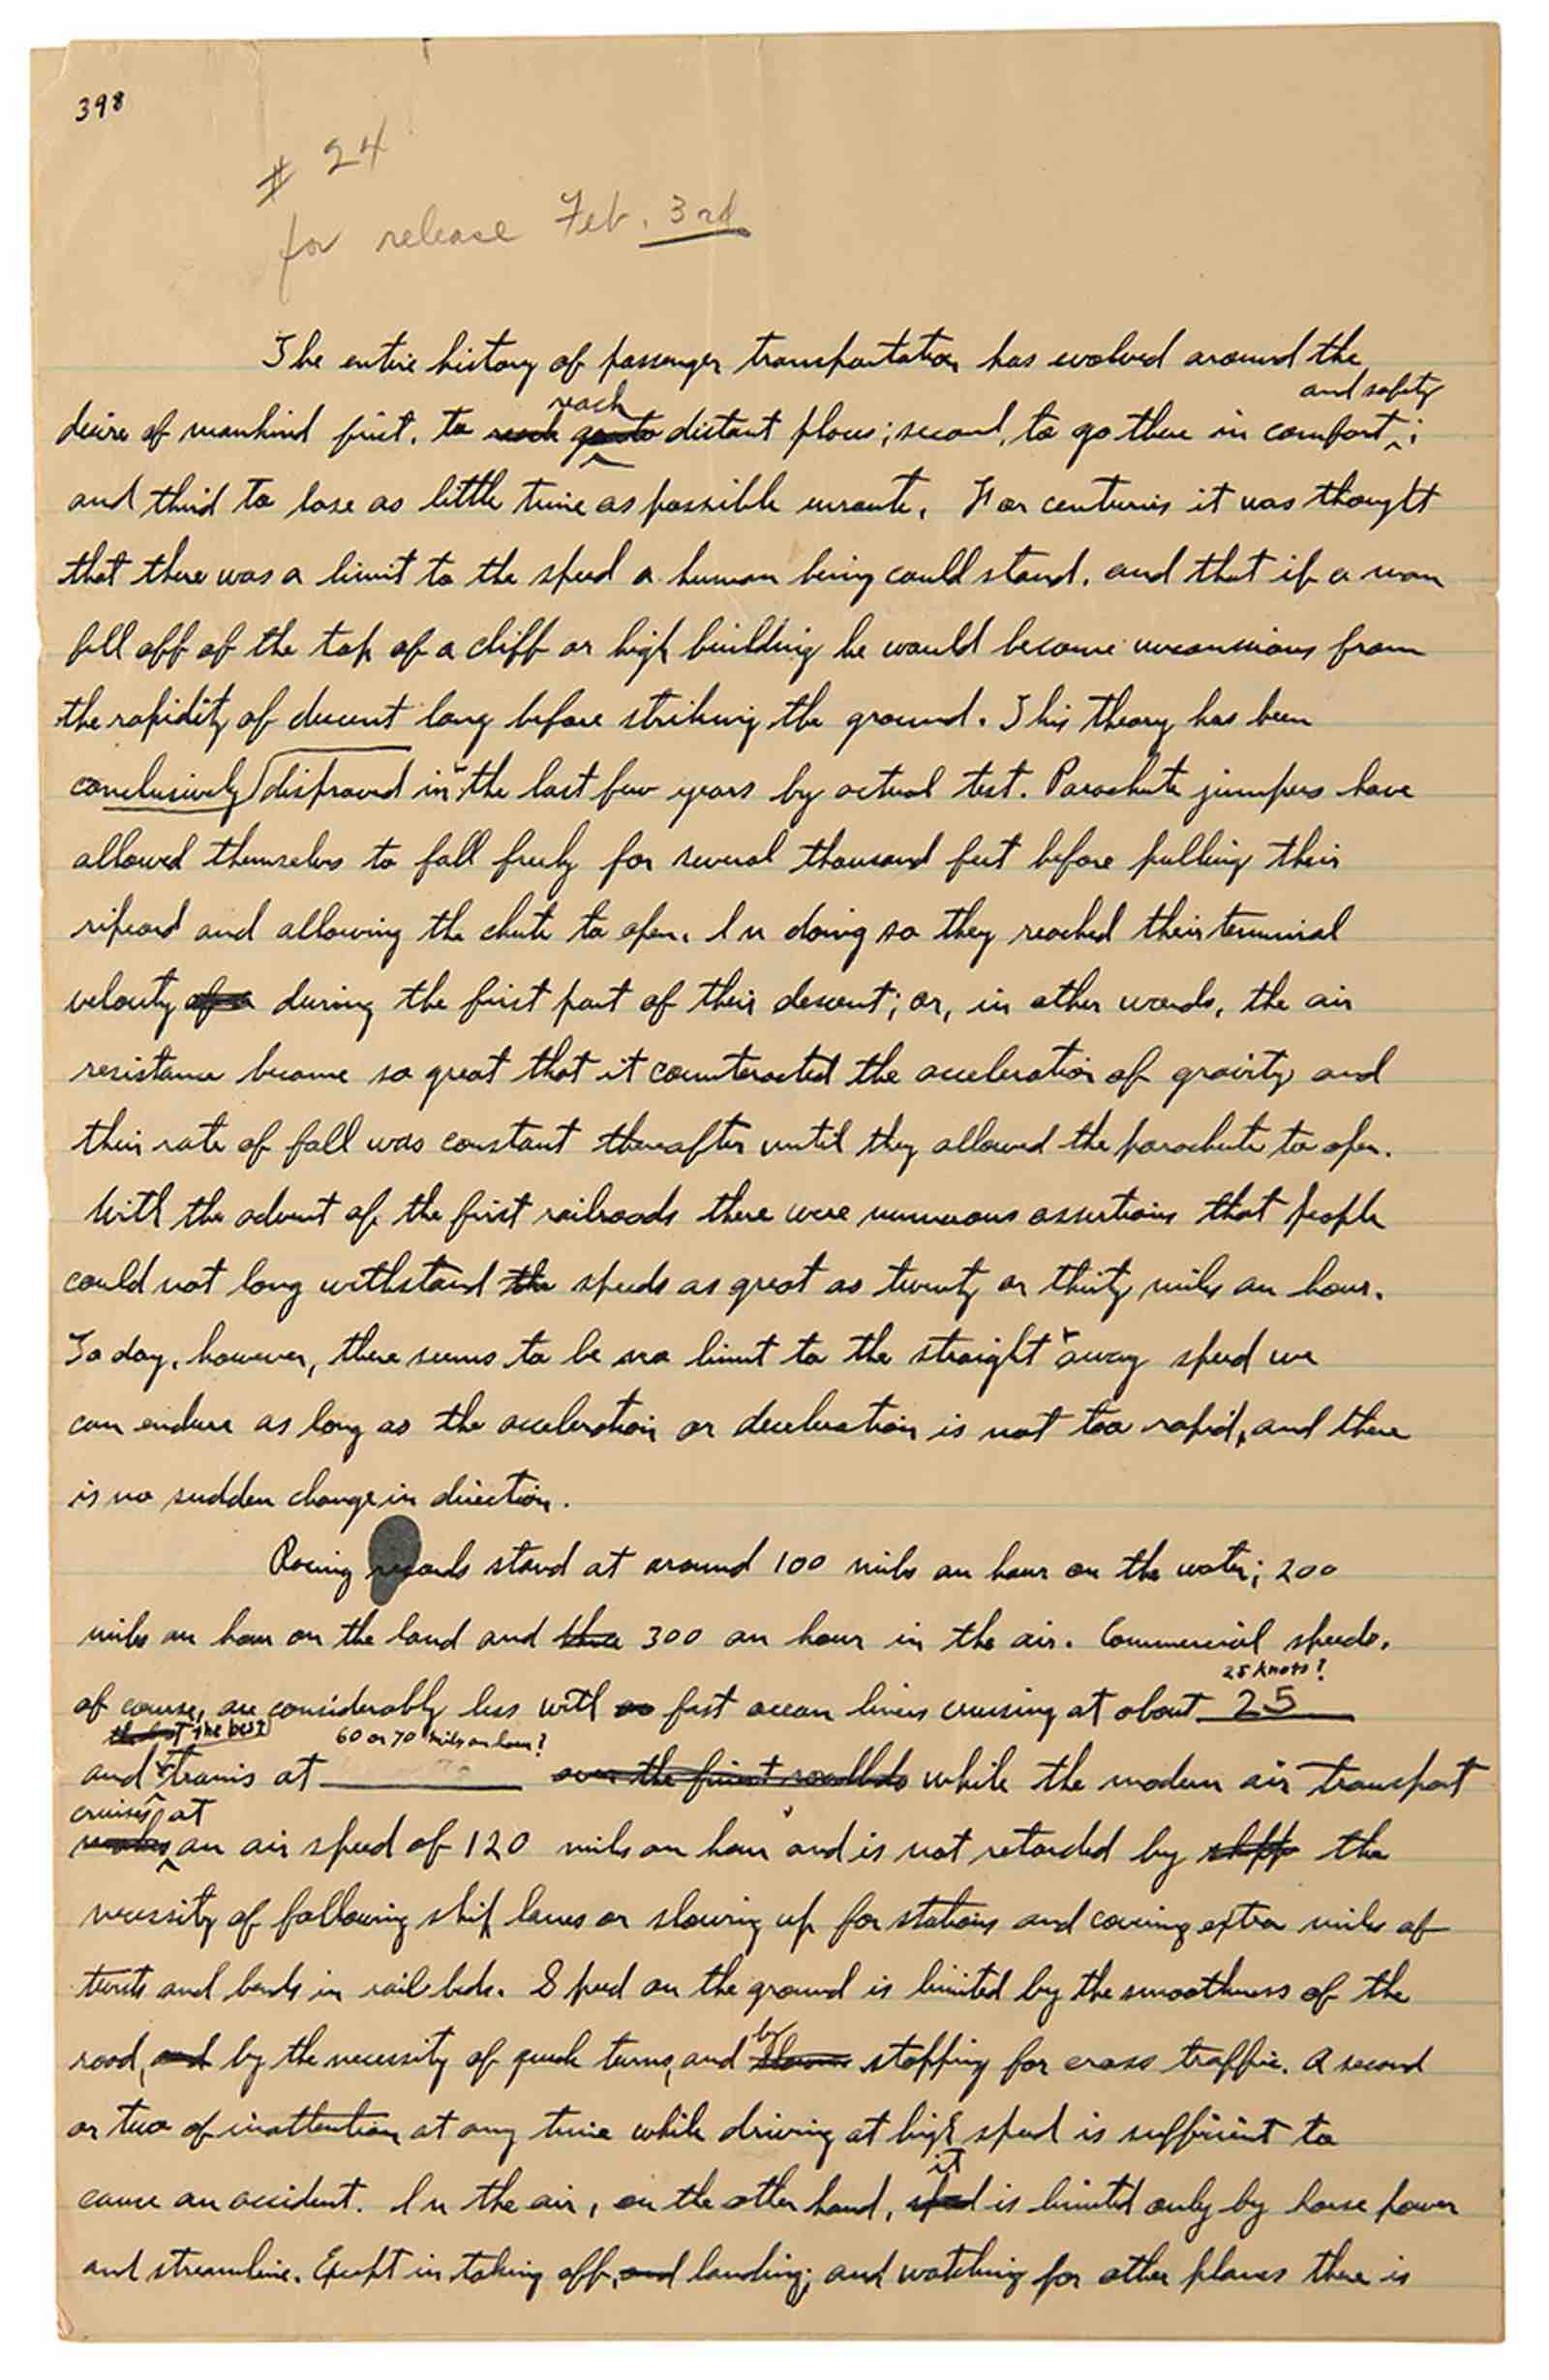 398
# 24
for release Feb. 3rd
The entire history of passenger transportation has evolved around the
and safety
reach
desire of mankind first, to reach go to distant places; second, to go there in comfort ;
and third to lose as little time as possible enroute. For centuries it was thought
that there was a limit to the speed a human being could stand, and that if a man
fell off of the top of a cliff or high building he would become unconsious from
the rapidity of decent long before striking the ground. This theory has been
conclusively disproved in the last few years by actual test. Parachute jumpers have
allowed themselves to fall freely for several thousand feet before pulling their
ripcord and allowing the chute to open. In doing so they reached their terminal
velocity of a during the first part of their descent; or, in other words, the air
resistance became so great that it counteracted the acceleration of gravity and
their rate of fall was constant thereafter until they allowed the parachute to open.
With the advent of the first railroads there were numerous assertions that people
could not long withstand the speeds as great as twenty or thirty miles an hour.
Today, however, there seems to be no limit to the straight away speed we
can endure as long as the acceleration or deceleration is not too rapid, and there
is no sudden change in direction.
Racing records stand at around 100 miles an hour on the water; 200
miles an hour on the land and three 300 an hour in the air. Commercial speeds,
25 knots?
of course, are considerably less with as fast ocean liners cruising at about 25
the best 60 or 70 miles an hour?
and trains at over the finest roadbeds while the modern air transport
cruises at
reaches an air speed of 120 miles an hour and is not retarded by the
necessity of following ship lanes or slowing up for stations and covering extra miles of
turns and bends in rail beds. Speed on the ground is limited by the smoothness of the
by
road, and by the necessity of quick turns, and stopping for cross traffic. A second
or two of inattention at any time while driving at high speed is sufficient to
it
cause an accident. In the air, on the other hand, speed is limited only by horse power
and streamline. Except in taking off, and landing; and watching for other planes there is